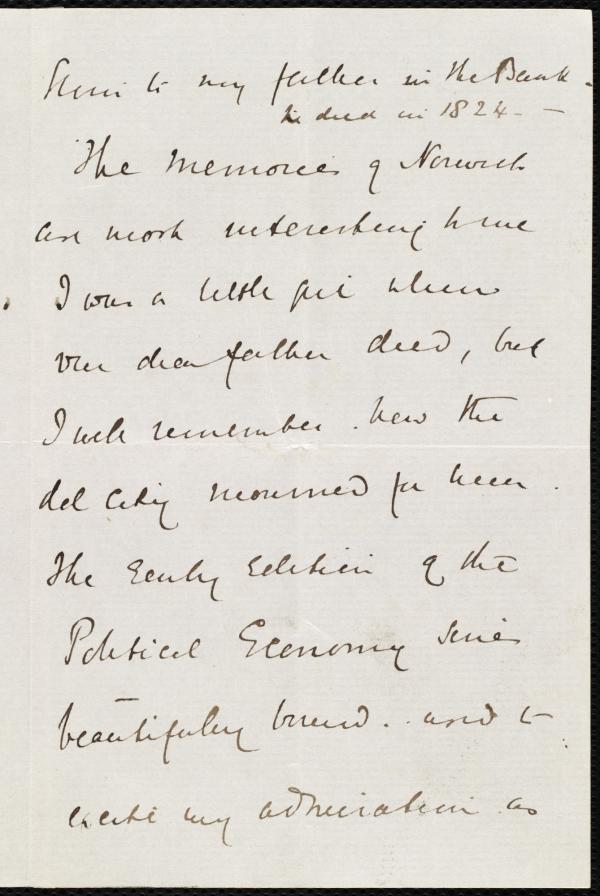 to my father in the Bank.
he died in 1824 –
The Memories of Norwich
are most interesting to me
I was a little girl when
our dear father died, but
I well remember how the
old City mourned for him.
The Early Edition of the
Political Economy Series
beautifully bound. used to
excite my admiration as